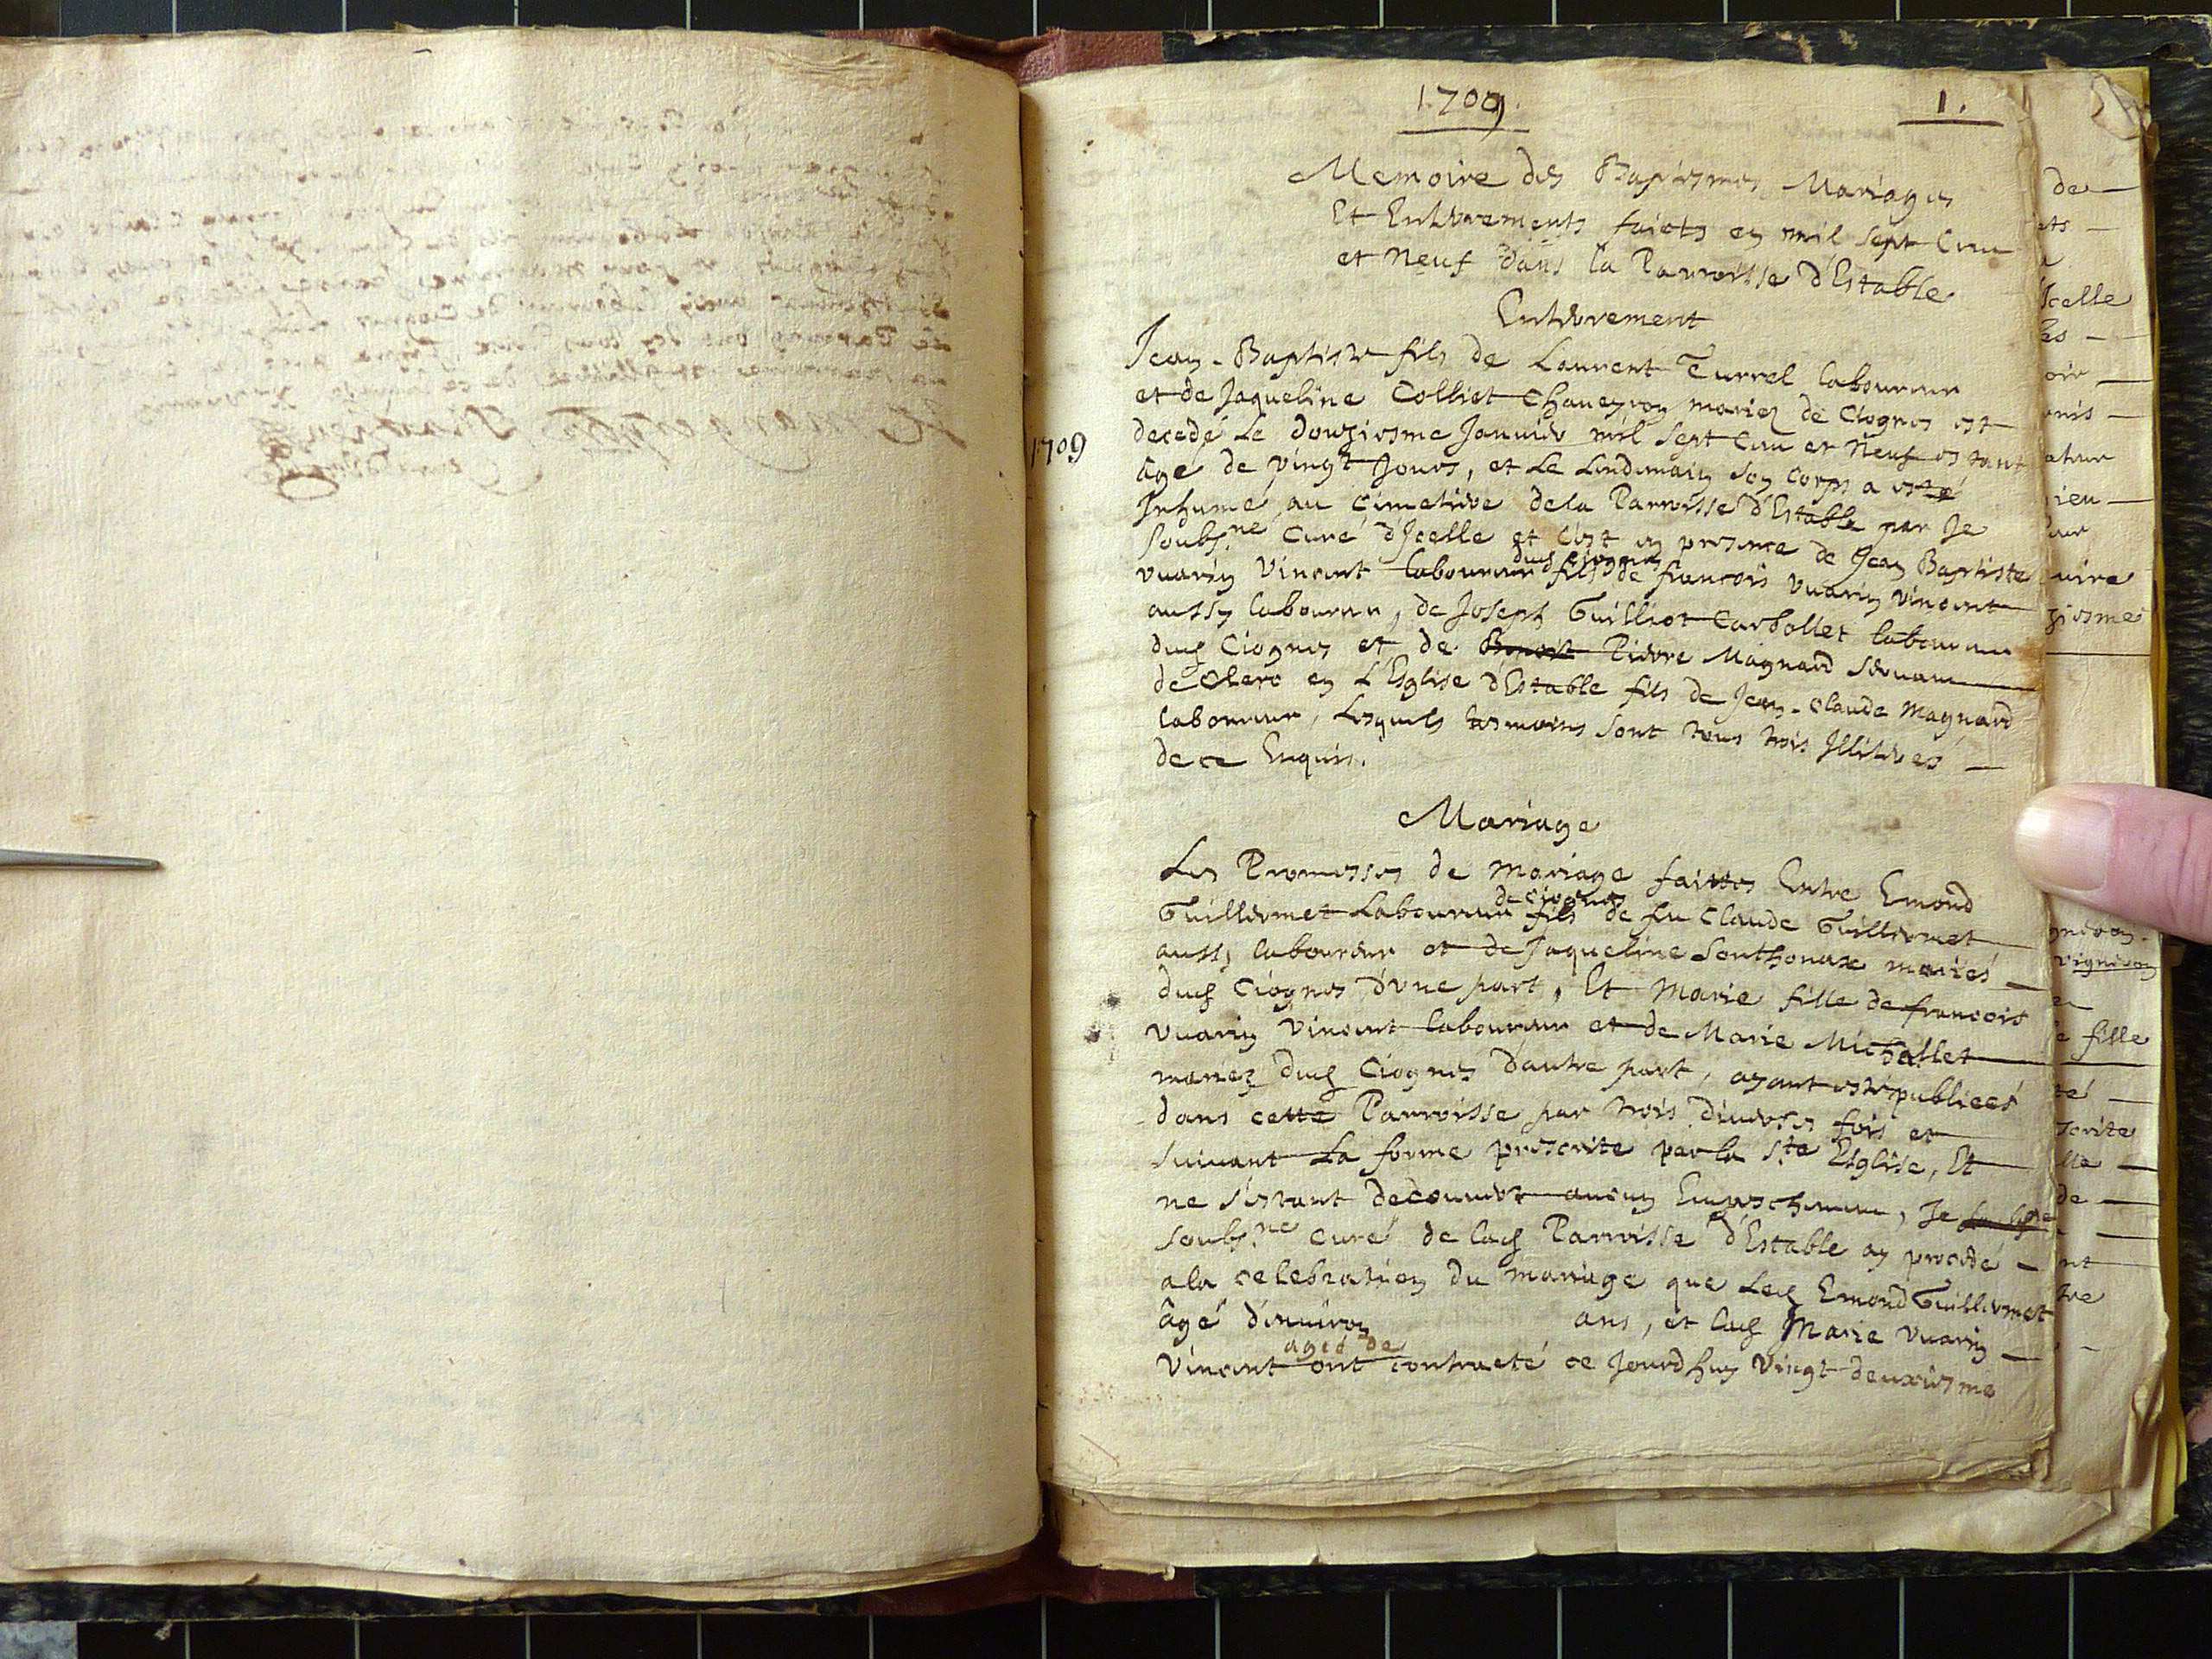 1709. 1.
Memoire des Baptesmes Mariages
Et Enterrements faicts en mil sept Cent
et Neuf dans la Parroisse d'Estable
Enterrement
Jean-Baptiste fils de Laurent Turrel laboureur
et de Jaqueline Colliet Chaneyron mariez de Ciognes est
1709
decedé Le douziesme Janvier mil sept Cent et Neuf estant
âge de vingt Jours, et Le Lendemain son corps a esté
Inhumé au Cimetiere dela Parroisse d'Estable par Je
soubs.né Curé d'Jcelle et c'est en presence de Jean Baptiste
dud Ciognes
vuarin Vincent laboureur fils de francois vuarin vincent
aussy laboureur, de Joseph Guilliot Carbollet laboureur
dud Ciognes et de Benoit Pierre Magnard servant
de Clerc en L'Esglise d'Estable fils de Jean-Claude Magnard
laboureur, Lesquels tesmoins sont tous trois Jlliterés
de ce Enquis.
Mariage
Les Promesses de Mariage faittes Entre Emond
de Ciognes
Guillermet Laboureur fils de feu Claude Guillermet
aussy laboureur et de Jaqueline Sonthonax mariés
dud Ciognes d'vne part, Et Marie fille de francois
vuarin Vincent laboureur et de Marie Michallet
mariez dud Ciognes dautre part, ayant esté publieés
dans cette Parroisse par trois diverses fois et
suivant La forme prescrite par la S.te Esglise, Et
ne s'estant decouvert aucun Empeschement, Je
soubs.né Curé de lad Parroisse d'Estable ay procedé
a la celebration du mariage que Led Emond Guillermet
âgé d'enuiron ans, et lad Marie vuarin
ageé de
Vincent ont contracté ce Jourd'huy Vingt-deuxiesme
de
ets
Jcelle
les
oir
ieu
uire
ziesme
vigneron
fille
té
scrite
de
nt
tre